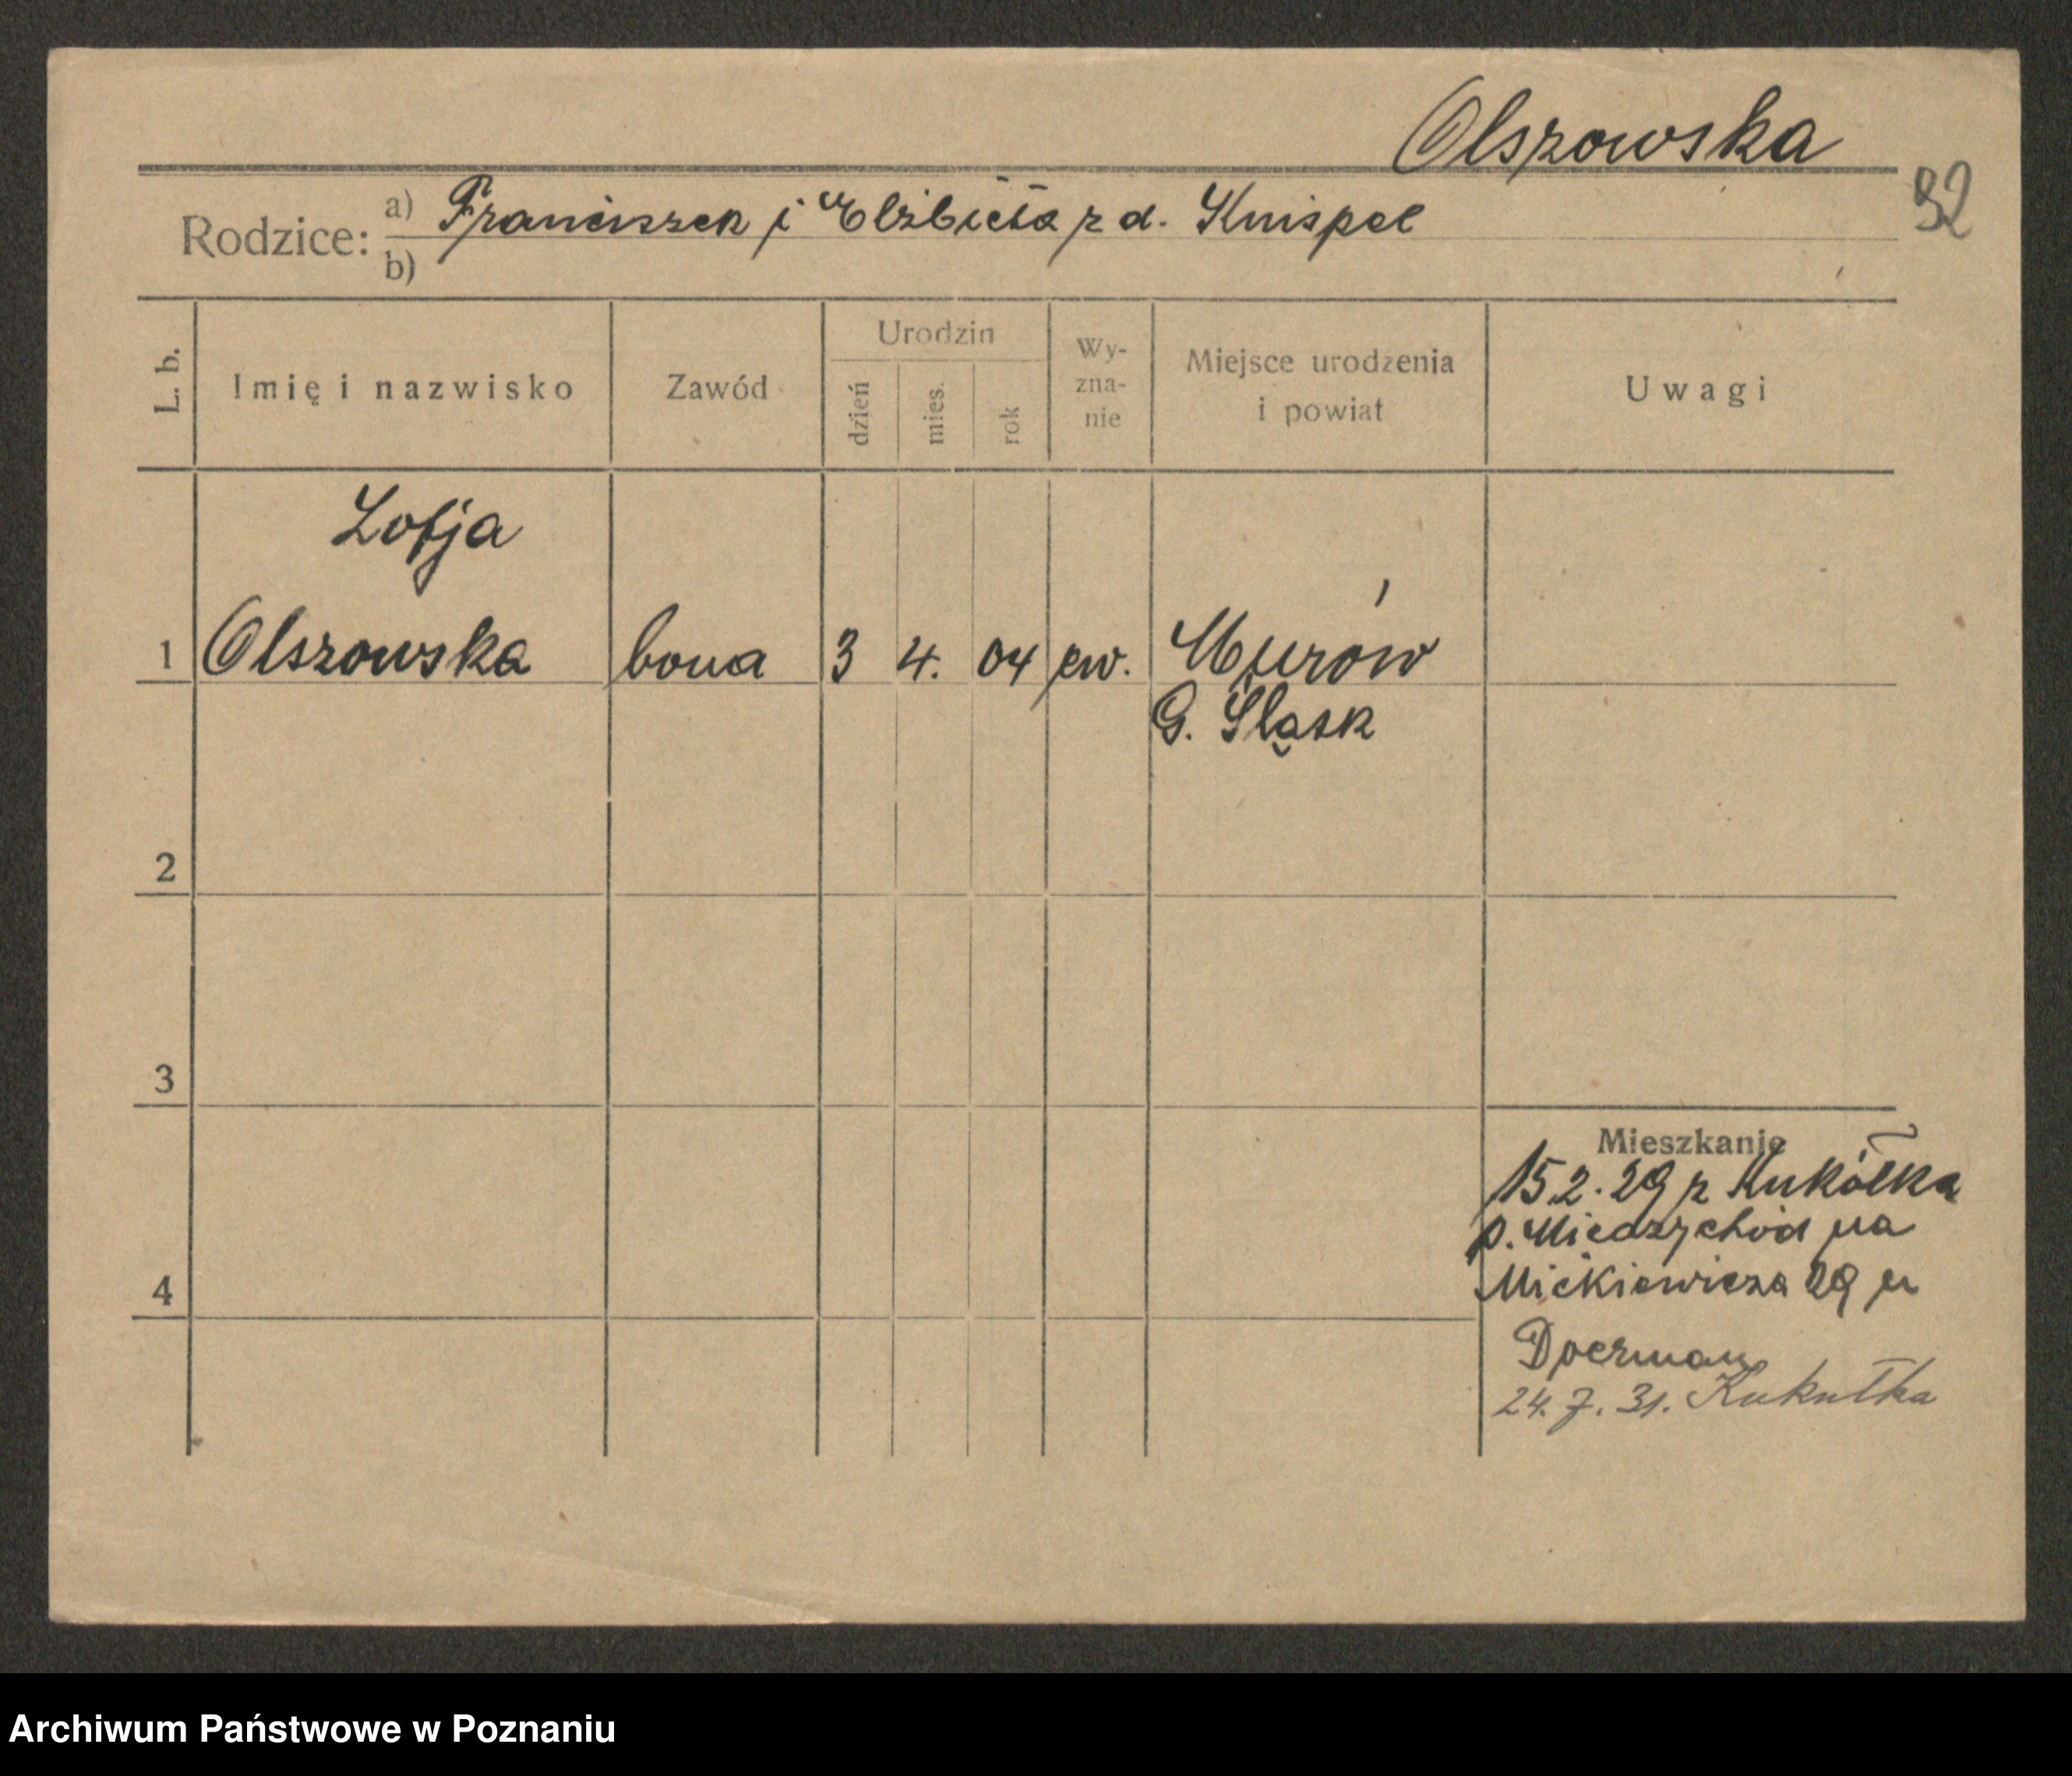 Olszowska
32
Rodzice: a) Franciszek i Elżbieta z d. Knispel
b)
L. b.
Imię i nazwisko
Zawód
Urodzin
dzień
mies.
rok
Wy-
zna-
nie
Miejsce urodzenia
i powiat
Uwagi
Zofja
1 Olszowska bona 3 4. 04 ew. Murów
G. Śląsk
2
3
Mieszkanie
15.2.29 z Kukółka
p. Miedzychód na
4 Mickiewicza 29 u
Doerman
24. 7. 31. Kukułka
Archiwum Państwowe w Poznaniu